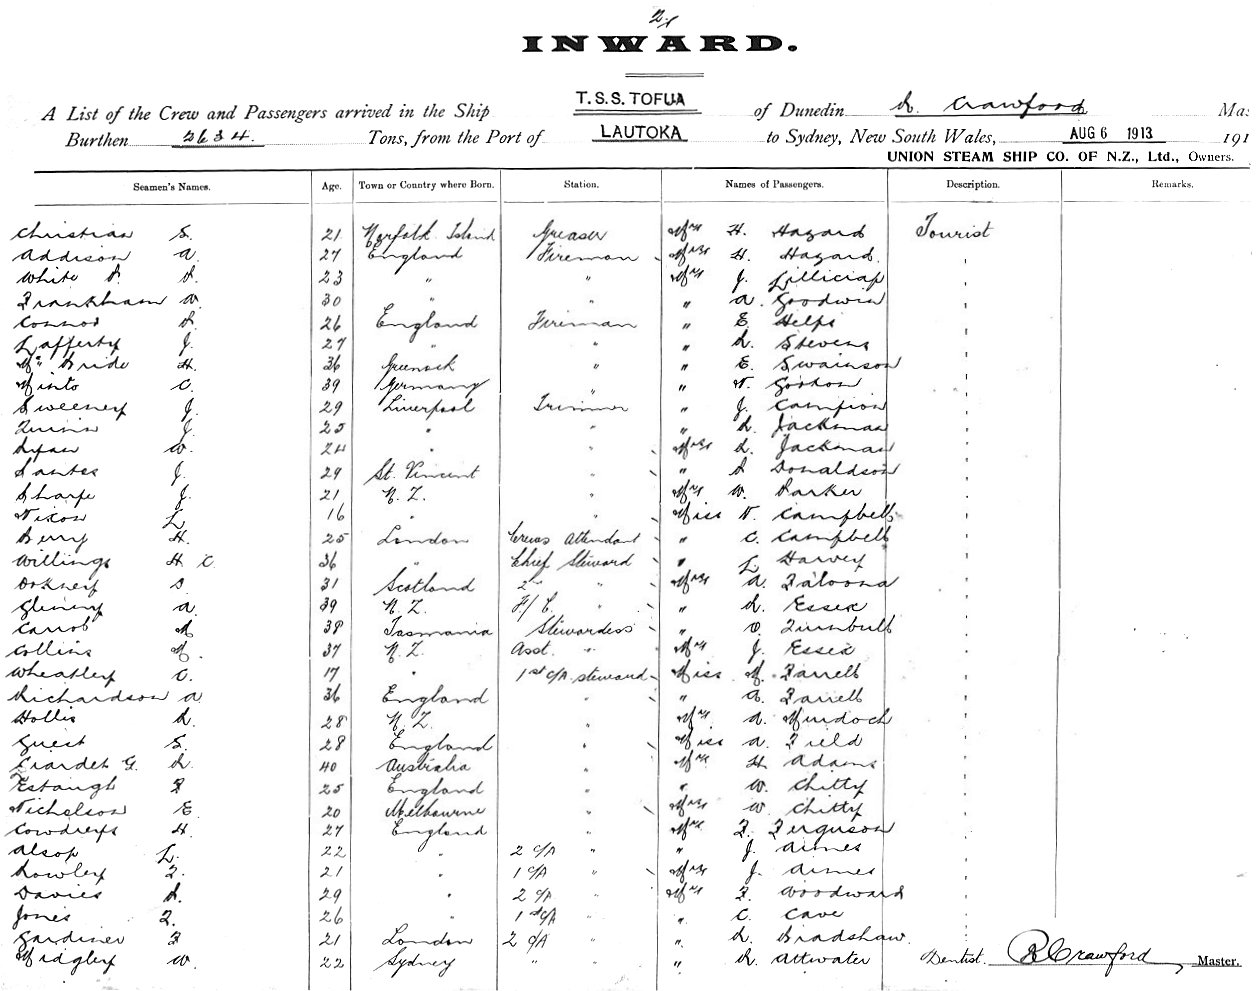 2/
INWARD.
A List of the Crew and Passengers arrived in the Ship T.S.S. TOFUA of Dunedin R. Crawford Mas
Burthen 2634. Tons, from the Port of LAUTOKA to Sydney, New South Wales, AUG 6 1913 191
UNION STEAM SHIP CO. OF N.Z., Ltd., Owners.
Seamen's Names. Age. Town or Country where Born. Station. Names of Passengers. Description. Remarks.
Christian S. 21 Norfolk Island Greaser Mr H. Hazard Tourist
Addison A. 27 England Fireman Mrs H. Hazard "
White R. 23 " " Mr J. Lillicrap "
Frankham W. 30 " " " A. Goodwin "
Connor R. 26 England Fireman " E. Helps "
Lafferty J. 27 " " " R. Stevens "
Mc Bride H. 36 Greenock " " E. Swainson "
Minto C. 39 Germany " " N. Gordon "
Sweeney J. 29 Liverpool Trimmer " J. Campion "
Quinn J. 25 " " " R. Jackman "
Ryan W. 24 " " Mrs R. Jackman "
Santes J. 29 St. Vincent " " Donaldson "
Sharpe J. 21 N.Z. " Mr W. Parker "
Nixon L. 16 " " Miss N. Campbell "
Berry H. 25 London Crews Attendant " C. Campbell "
Willings H C 36 " Chief Steward " L. Harvey "
31 Scotland 2nd " Mrs A. "
A. 39 N.Z. F/C. " " R. Essex "
38 Tasmania Stewardess " Turnbull "
Collins M. 37 N.Z. Asst. " Mr J. Essex "
Wheatley C. 17 " 1st c/A steward Miss M. Farrell "
Richardson A 36 England " " A. Farrell "
Hollis R. 28 N.Z. " Mr A. Murdoch "
Guest S. 28 England " Miss A. Field "
G. R. 40 Australia " Mr H. Adams "
Estaugh F 25 England " " W. Chitty "
Nicholson E. 20 Melbourne " Mrs W. Chitty "
Cowdrey H. 27 England " Mr F. Ferguson "
Alsop L. 22 " 2 c/A " " J. Aimes "
Rowley F. 21 " 1 c/A " Mrs J. Aimes "
Davies R. 29 " 2 c/A " Mr F. Woodward "
Jones F. 26 " 1st c/A " " C. Cave "
Gardiner F 21 London 2 c/A " " R. Bradshaw "
Midgley W. 22 Sydney " " " R. Attwater Dentist. R Crawford Master.